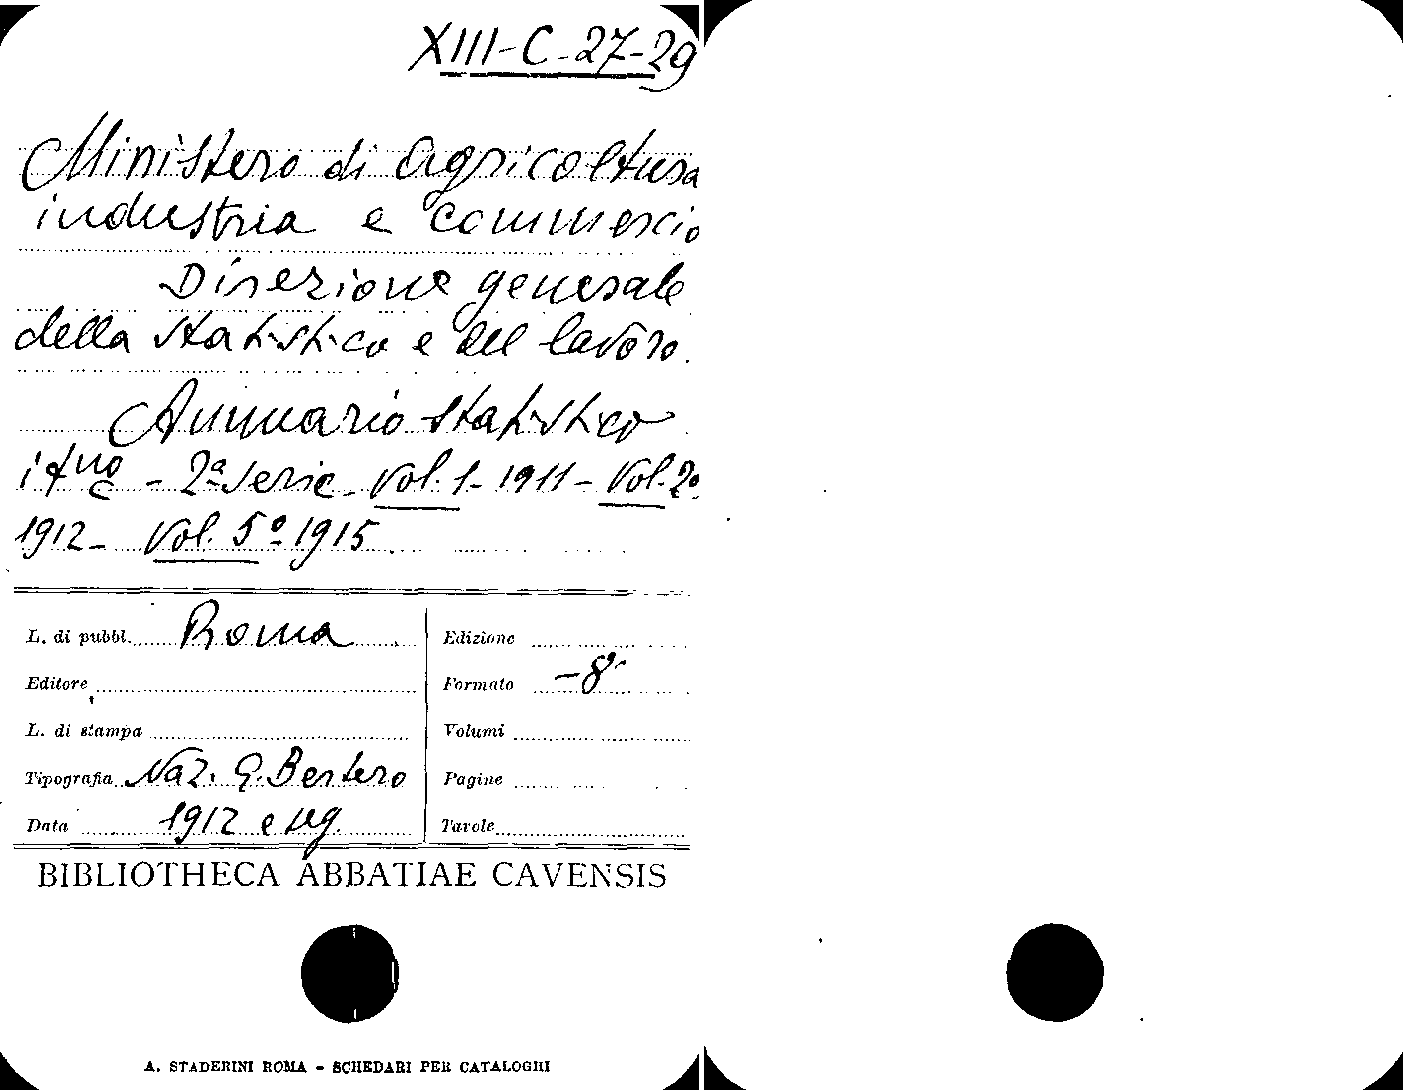 XIII-C-27-29
Ministero di Agricoltura
industria e commercio
Direzione generale
della statistica e del lavoro.
Annuario statistico
it.no - 2ª serie - Vol. 1 - 1911 - Vol. 2º
1912 - Vol. 5º 1915
L. di pubbl. Roma
Editore
L. di stampa
Tipografia Naz. G. Bertero
Data 1912 e seg.
Edizione
Formato -8º
Volumi
Pagine
Tavole
BIBLIOTHECA ABBATIAE CAVENSIS
A. STADERINI ROMA - SCHEDARI PER CATALOGHI